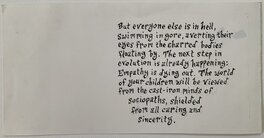 But everyone else is in hell,
swimming in gore, averting their
eyes from the charred bodies
floating by. The next step in
evolution is already happening:
Empathy is dying out. The world
of your children will be viewed
from the cast-iron minds of
sociopaths, shielded
from all caring and
sincerity.